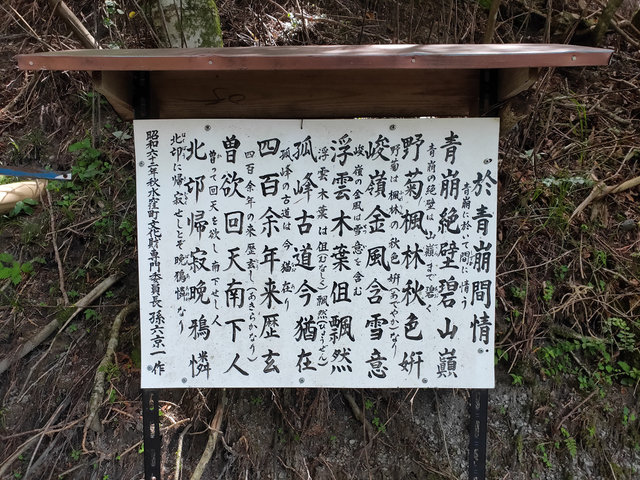 於青崩間情
青崩に於て間に情
青崩絶壁碧山巓
青崩の絶壁は山巓まで碧く
野菊楓林秋色姸
野菊 楓林の秋色姸(あでやかなり)
峻嶺金風含雪意
峻嶺の金風は雪意を含む
浮雲木葉但飄然
浮雲木葉は但(むなしく)飄然
孤峰古道今猶在
孤峰の古道は今猶在り
四百余年来歴玄
四百余年の来歴玄(あきらかなり)
曽欲回天南下人
曽って回天を欲し南下せし人
北邙帰寂晩鴉憐
北邙に帰寂せしとぞ晩鴉憐なり
昭和六十年秋水窪町文化財専門委員長 孫六京一作